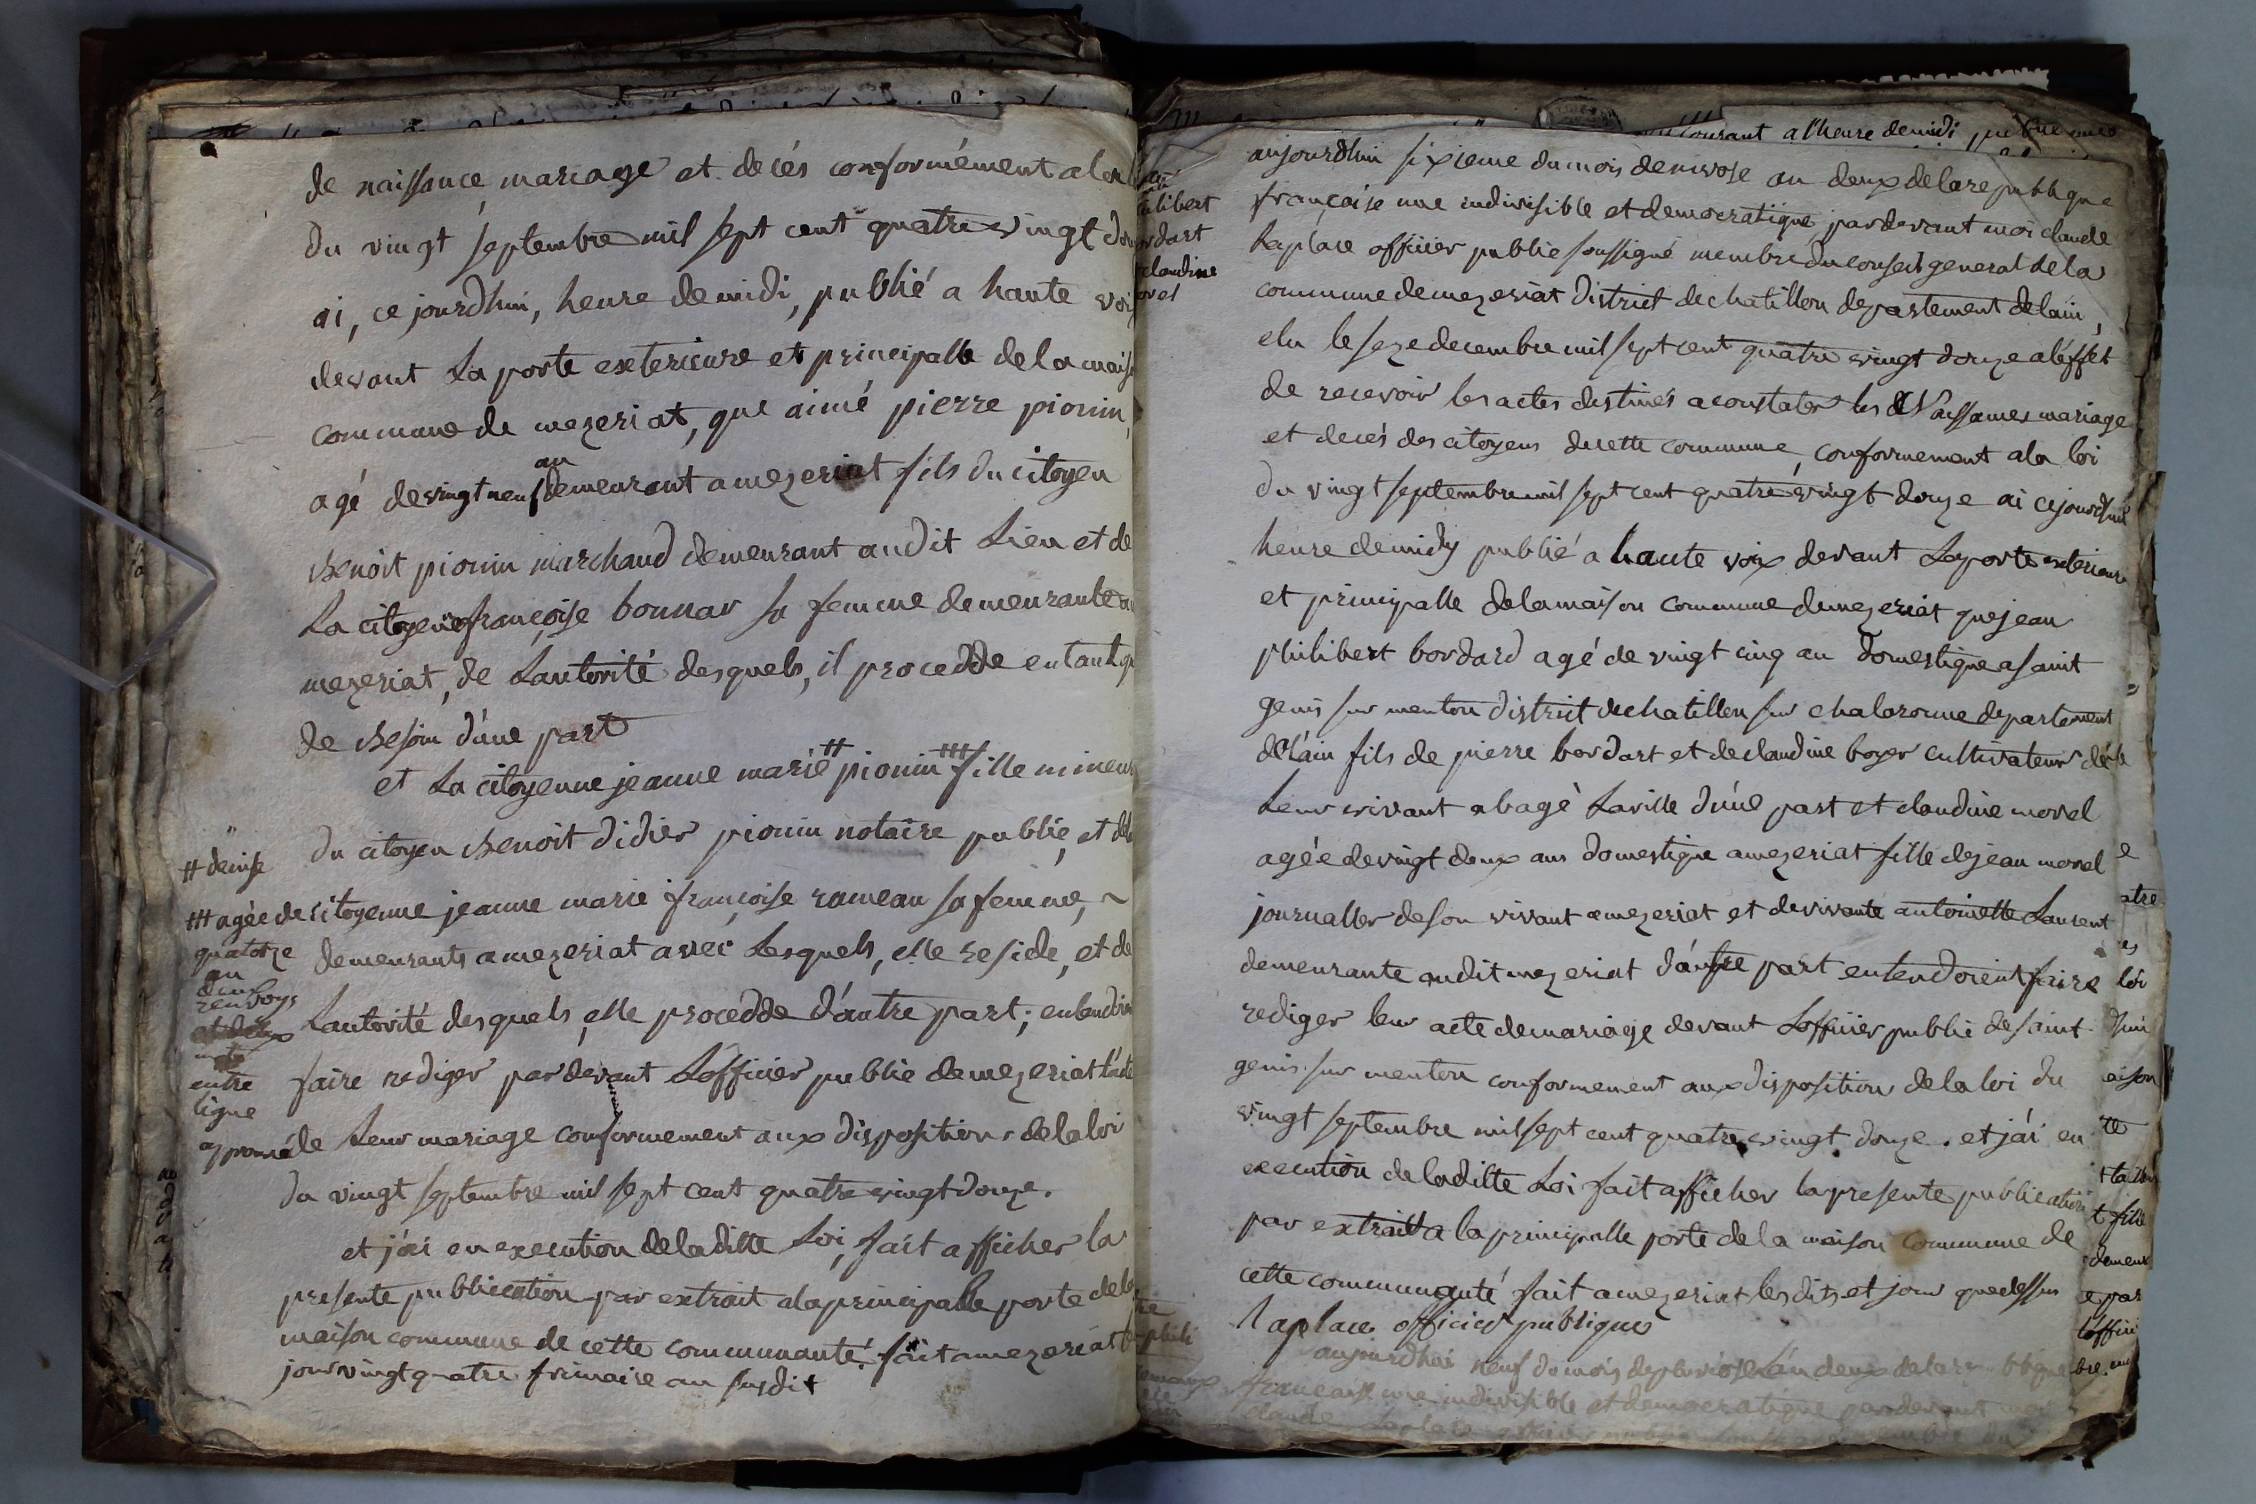 de naissance mariage et decés conformément a la
du vingt septembre mil sept cent quatre vingt
ai, ce jourdhui, heure de midi, publié a haute voix
devant La porte exterieure et principalle de la
commune de mezeriat, que aimé pierre pionin,
an
agé de vingt neuf demeurant a mezeriat fils du citoyen
Benoit pionin marchand demeurant audit Lieu et de
La citoyene françoise bonnar sa femme demeurante
mezeriat, de Lautorité desquels, il procedde entant
de Besoin d'une part
et La citoyenne jeanne marie # pionin ### fille
# denise
du citoyen Benoit didier pionin notaire public, et
### agée de
citoyenne jeanne marie françoise rameau sa femme, ~
quatorze
an
demeurants a mezeriat avec Lesquels, elle reside, et de
deux
renvoys
Lautorité desquels, elle procedde d'autre part; entendoi
entre
faire rediger par devant Lofficier public de mezeriat
ligne
approuvé
de Leur mariage conformement aux dispositions de la loi
du vingt septembre mil sept cent quatre vingt douze.
et j'ai en execution de laditte Loi, fait afficher la
presente publication par extrait a la principalle porte de la
maison commune de cette communauté. fait a mezeriat
jour vingt quatre frimaire an susdit
courant a l'heure de midi
libert
ordart
claudine
aujourdhui sixieme du mois de nivose an deux de la republique
françoise une indivisible et democratique, par devant moi claude
Laplace officier public soussigné membre du conseil general de la
commune de mezeriat district de chatillon departement de lain,
elu le seze decembre mil sept cent quatre vingt douze a l'éffet
de recevoir les actes destinés a constater les Naissances mariage
et decés des citoyens de cette commune, conformement a la loi
du vingt septembre mil sept cent quatre vingt douze ai cejourdhui
heure de midy publié a haute voix devant La porte exterieure
et principalle de la maison commune de mezeriat que jean
philibert bordard agé de vingt cinq an domestique a saint
genis sur menton district de chatillon sur chalaronne departement
de l'ain fils de pierre bordart et de claudine boyer cultivateur de
Leur vivant a bagé Laville d'une part et claudine morel
agée de vingt deux ans domestique a mezeriat fille de jean morel
journallier de son vivant a mezeriat et de vivante antoinette Laurent
demeurante audit mezeriat d'autre part entendoient faire
rediger leur acte de mariage devant Lofficier public de saint
genis sur menton conformement aux disposition de la loi du
vingt septembre mil sept cent quatre vingt douze. et j'ai en
execution de laditte Loi fait afficher la presente publication
par extrait a la principalle porte de la maison commune de
cette communauté fait a mezeriat lesdits et jour que dessus
Laplace officier publique
aujourdhui neuf du mois de pluviose l'an deux de la republique
francaise une indivisible et democratique par devant moi
claude Laplace officier public